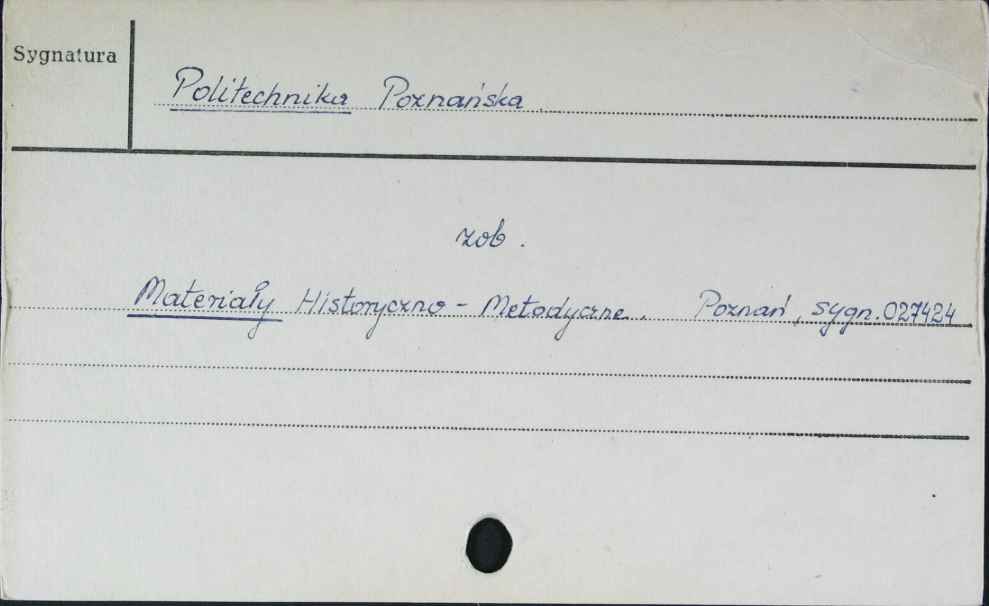 Sygnatura
Politechnika Poznańska.
zob.
Materiały Historyczno - Metodyczne. Poznań, sygn. 027424